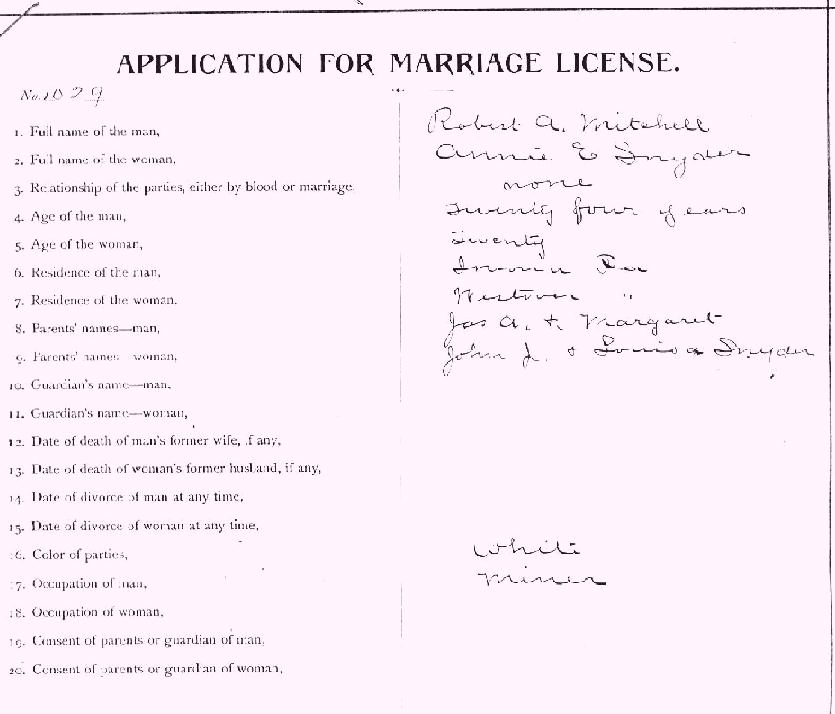 APPLICATION FOR MARRIAGE LICENSE.
No. 1029
1. Full name of the man, Robert A. Mitchell
2. Full name of the woman, Annie E Snyder
3. Relationship of the parties, either by blood or marriage. none
4. Age of the man, Twenty four years
5. Age of the woman, Twenty
6. Residence of the man, Irvona Pa
7. Residence of the woman. Westover "
8. Parents' names—man, Jas A. + Margaret
9. Parents' names—woman, John J. + Louisa Snyder
10. Guardian's name—man,
11. Guardian's name—woman,
12. Date of death of man's former wife, if any,
13. Date of death of woman's former husband, if any,
14. Date of divorce of man at any time,
15. Date of divorce of woman at any time,
16. Color of parties, White
17. Occupation of man, Miner
18. Occupation of woman,
19. Consent of parents or guardian of man,
20. Consent of parents or guardian of woman,